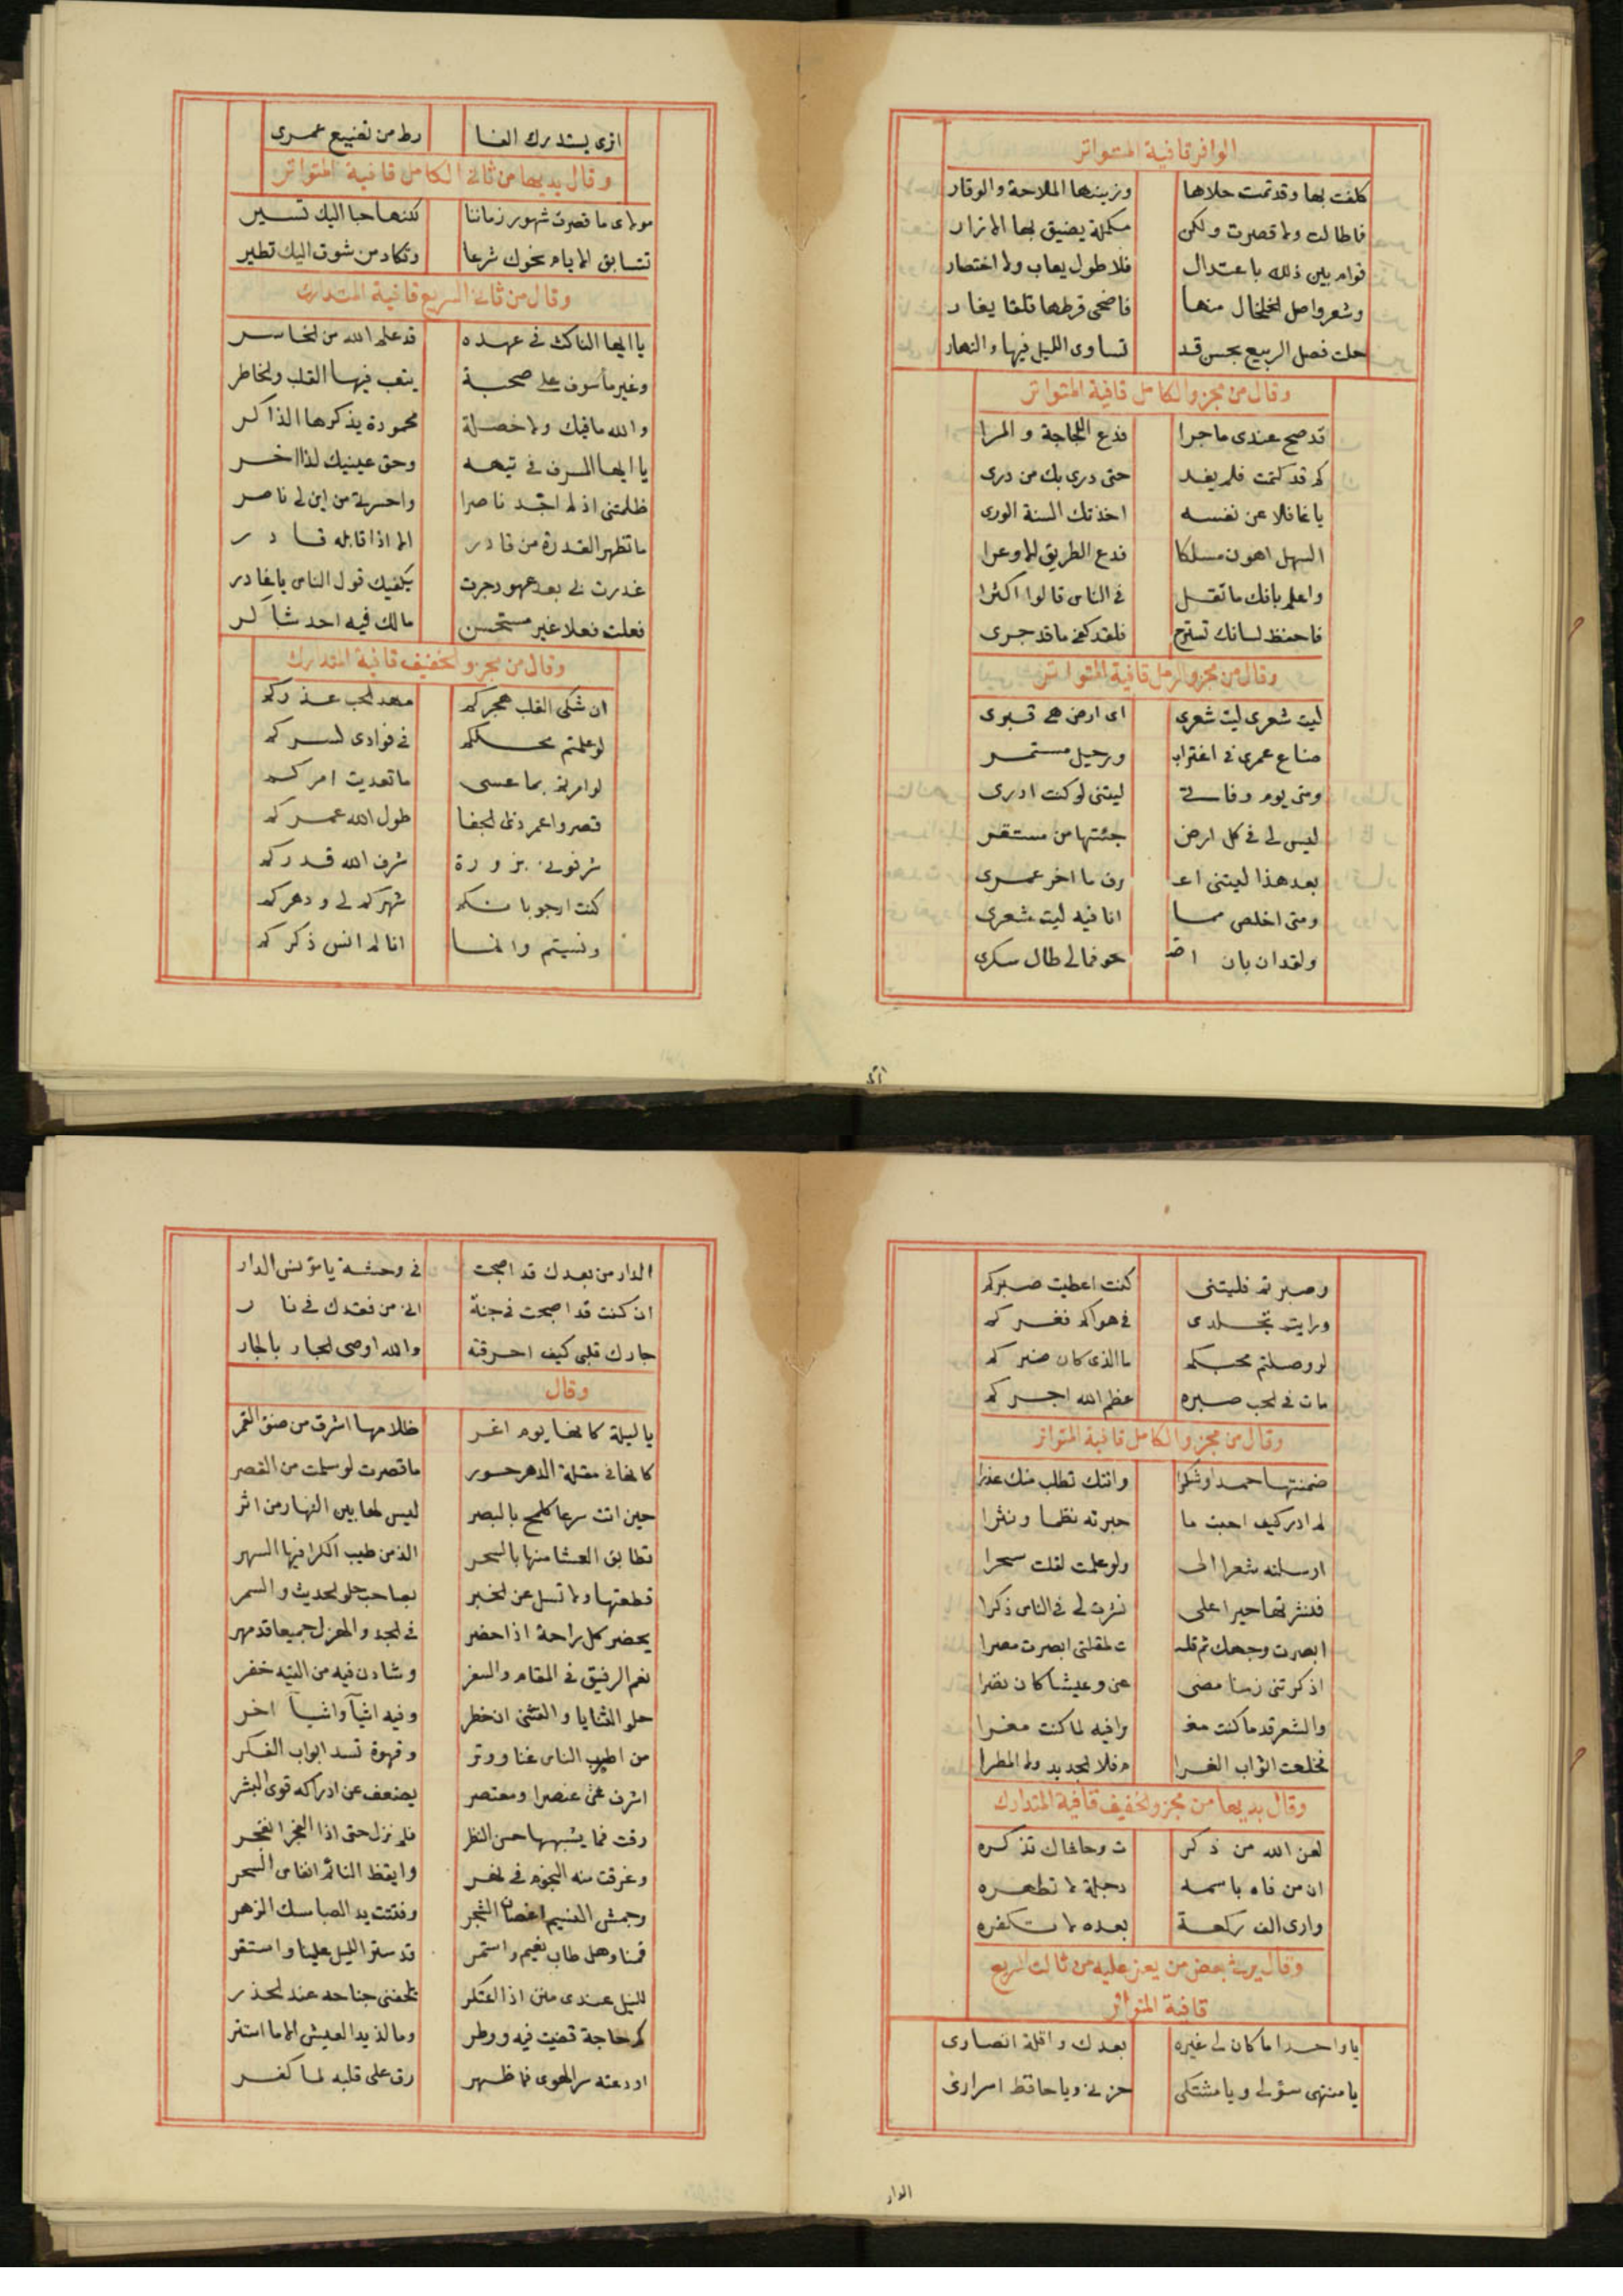 الوافر قافية المتواتر
كلفت بها وقد تمت حلاها وزينها الملاحة والوقار
فاطالت ولا قصرت ولكن مكملة يضيق بها الازار
قوام بين ذلك باعتدال فلا طول يعاب ولا اختصار
وشعر واصل الخلخال منها فاضحى قرطها قلقا يغار
حلت فصل الربيع بحسن قد تساوى الليل فيها والنهار
وقال من مجزو الكامل قافية المتواتر
قد صح عندى ماجرا فدع اللجاجة والمرا
كم قد كتمت فلم يفد حتى درى بك من درى
يا غافلا عن نفسه اخذتك السنة الورى
السهل اهون مسلكا فدع الطريق الاوعرا
واعلم بانك ما تقل فى الناس قالوا اكثرا
فاحفظ لسانك تسترح فلقد كفى ما قد جرى
وقال من مجزو الرمل قافية المتواتر
ليت شعرى ليت شعرى اى ارض هى قبرى
ضاع عمرى فى اغتراب ورحيل مستمر
ومتى يوم وفاتى ليتنى لو كنت ادرى
ليس لى فى كل ارض جئتها من مستقر
بعد هذا ليتنى اعـ رف ما اخر عمرى
ومتى اخلص مما انا فيه ليت شعرى
ولقد ان بان اصـ حو فمالى طال سكرى
اترى
اترى يستدرك الفا رط من تضييع عمرى
وقال بديها من ثانى الكامل قافية المتواتر
مولاى ما قصرت شهور زماننا لكنها حبا اليك تسير
تتسابق الايام نحوك شرعا وتكاد من شوق اليك تطير
وقال من ثانى السريع قافية المتدارك
يا ايها الناكث فى عهده قد علم الله من الخاسر
وغير مأسوف على صحبة يتعب فيها القلب والخاطر
والله ما فيك ولا خصلة محمودة يذكرها الذاكر
يا ايها المسرف فى تيهه وحق عينيك لذا اخر
ظلمتنى اذ لم اجد ناصرا واحسرتى من اين لى ناصر
ما تظهر القدرة من قادر الا اذا قابله قادر
غدرت بى بعد عهود جرت يكفيك قول الناس يا غادر
فعلت فعلا غير مستحسن مالك فيه احد شاكر
وقال من مجزو الخفيف قافية المتدارك
ان شكى القلب هجركم مهد الحب عذركم
لو علمتم محلكم فى فوادى لسركم
لو امرتم بما عسى ما تعديت امركم
قصروا عمر ذى الجفا طول الله عمركم
شرفونى بزورة شرف الله قدركم
كنت ارجو بانكم شهركم لى ودهركم
ونسيتم وانما انا لم انس ذكركم
وصبرتم فليتنى كنت اعطيت صبركم
ورايتم تجلدى فى هواكم فغركم
لو وصلتم محبكم ما الذى كان ضركم
مات فى الحب صبره عظم الله اجركم
وقال من مجزو الكامل قافية المتواتر
ضمنتها حمدا وشكرا واتتك تطلب منك عذرا
لم ادر كيف اجبت ما حبرته نظما ونثرا
ارسلته شعرا الى ولو علمت لقلت سحرا
فنشرتها حبرا على نشرت لى فى الناس ذكرا
ابصرت وجهك ثم قلـ ت لمقلتى ابصرت مصرا
اذكرتنى زمنا مضى عنى وعيشا كان نضرا
والشعر قدما كنت مغـ را فيه لما كنت مغرا
فخلعت اثواب الغرا م فلا الجديد ولا المطرا
وقال بديها من مجزو الخفيف قافية المتدارك
لعن الله من ذكر ت وحاشاك تذكره
ان من فاه باسمه دجلة لا تطهره
وارى الف ركعة بعده لا تكفره
وقال يرثى بعض من يعز عليه من ثالث السريع
قافية المتواتر
يا واحدا ما كان لى غيره بعدك واقلة انصارى
يا منتهى سؤلى ويا مشتكى حزنى ويا حافظ اسرارى
الدار
الدار من بعدك قد اصبحت فى وحشة يا مؤنس الدار
ان كنت قد اصبحت فى جنة انى من فقدك فى نار
جارك قلبى كيف احرقته والله اوصى الجار بالجار
وقال
يا ليلة كانها يوم اغر ظلامها اشرق من ضوء القمر
كانها فى مقلة الدهر حور ما قصرت لو سلمت من القصر
حين اتت سرعا كلمح بالبصر ليس لها بين النهار من اثر
تطابق العشا منها بالسحر الذ من طيب الكرا فيها السهر
قطعتها ولا تسل عن الخبر بصاحب حلو الحديث والسمر
يحضر كل راحة اذا حضر فى الجد والهزل جميعا قد مهر
نعم الرفيق فى المقام والسفر وشادن فيه من التيه خفر
حلو الثنايا والتثنى ان خطر وفيه اشيآ واشيآ اخر
من اطيب الناس غنا ووتر وقهوة تسد ابواب الفكر
اشرف شئ عنصرا ومعتصر يضعف عن ادراكه قوى البشر
رقت فما يشبهها حسن النظر فلم نزل حتى اذا الفجر انفجر
وغرقت منه النجوم فى نهر وايقظ النائم انفاس السحر
وجمش النسيم اغصان الشجر وفتتت يد الصبا مسك الزهر
قمنا وهل طاب نعيم واستمر قد ستر الليل علينا واستقر
لليل عندى منن اذا اعتكر تلحفنى جناحه عند الحذر
كم حاجة قضيت فيه ووطر وما لذيد العيش الا ما استتر
اودعته سر الهوى فما ظهر رق على قلبه لما كفر